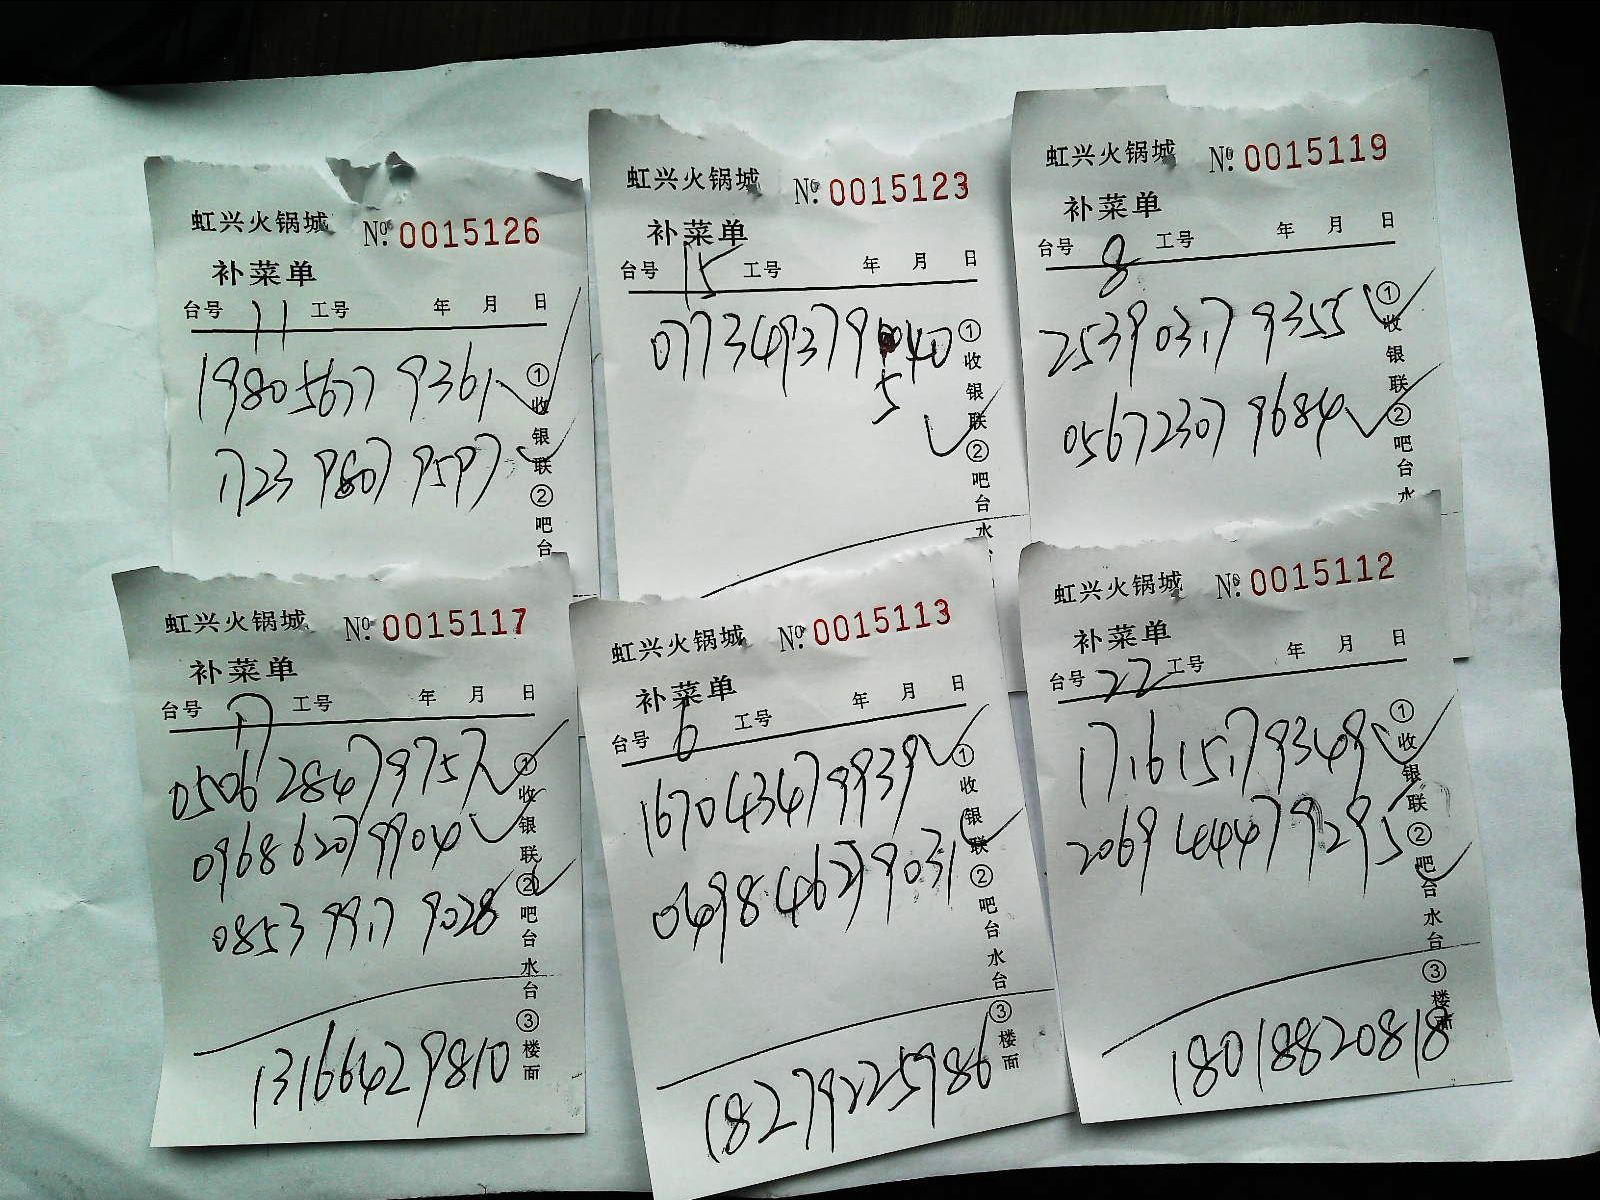 虹兴火锅城 №: 0015126
补菜单
台号 11 工号 年 月 日
19805677 9361
1723 9807 9597
①收银联 ②吧台
虹兴火锅城 №: 0015123
补菜单
台号 15 工号 年 月 日
077349379 040
5
①收银联 ②吧台水
虹兴火锅城 №: 0015119
补菜单
台号 8 工号 年 月 日
25390317 9355
05672307 9684
①收银联 ②吧台水
虹兴火锅城 №: 0015117
补菜单
台号 17 工号 年 月 日
0506284799757
096862079904
08539917 9028
①收银联 ②吧台水台 ③楼面
13166429810
虹兴火锅城 №: 0015113
补菜单
台号 6 工号 年 月 日
167043479939
069846279031
①收银联 ②吧台水台 ③楼面
18279225986
虹兴火锅城 №: 0015112
补菜单
台号 22 工号 年 月 日
171615179349
206944479295
①收银联 ②吧台水台 ③楼面
18018820818